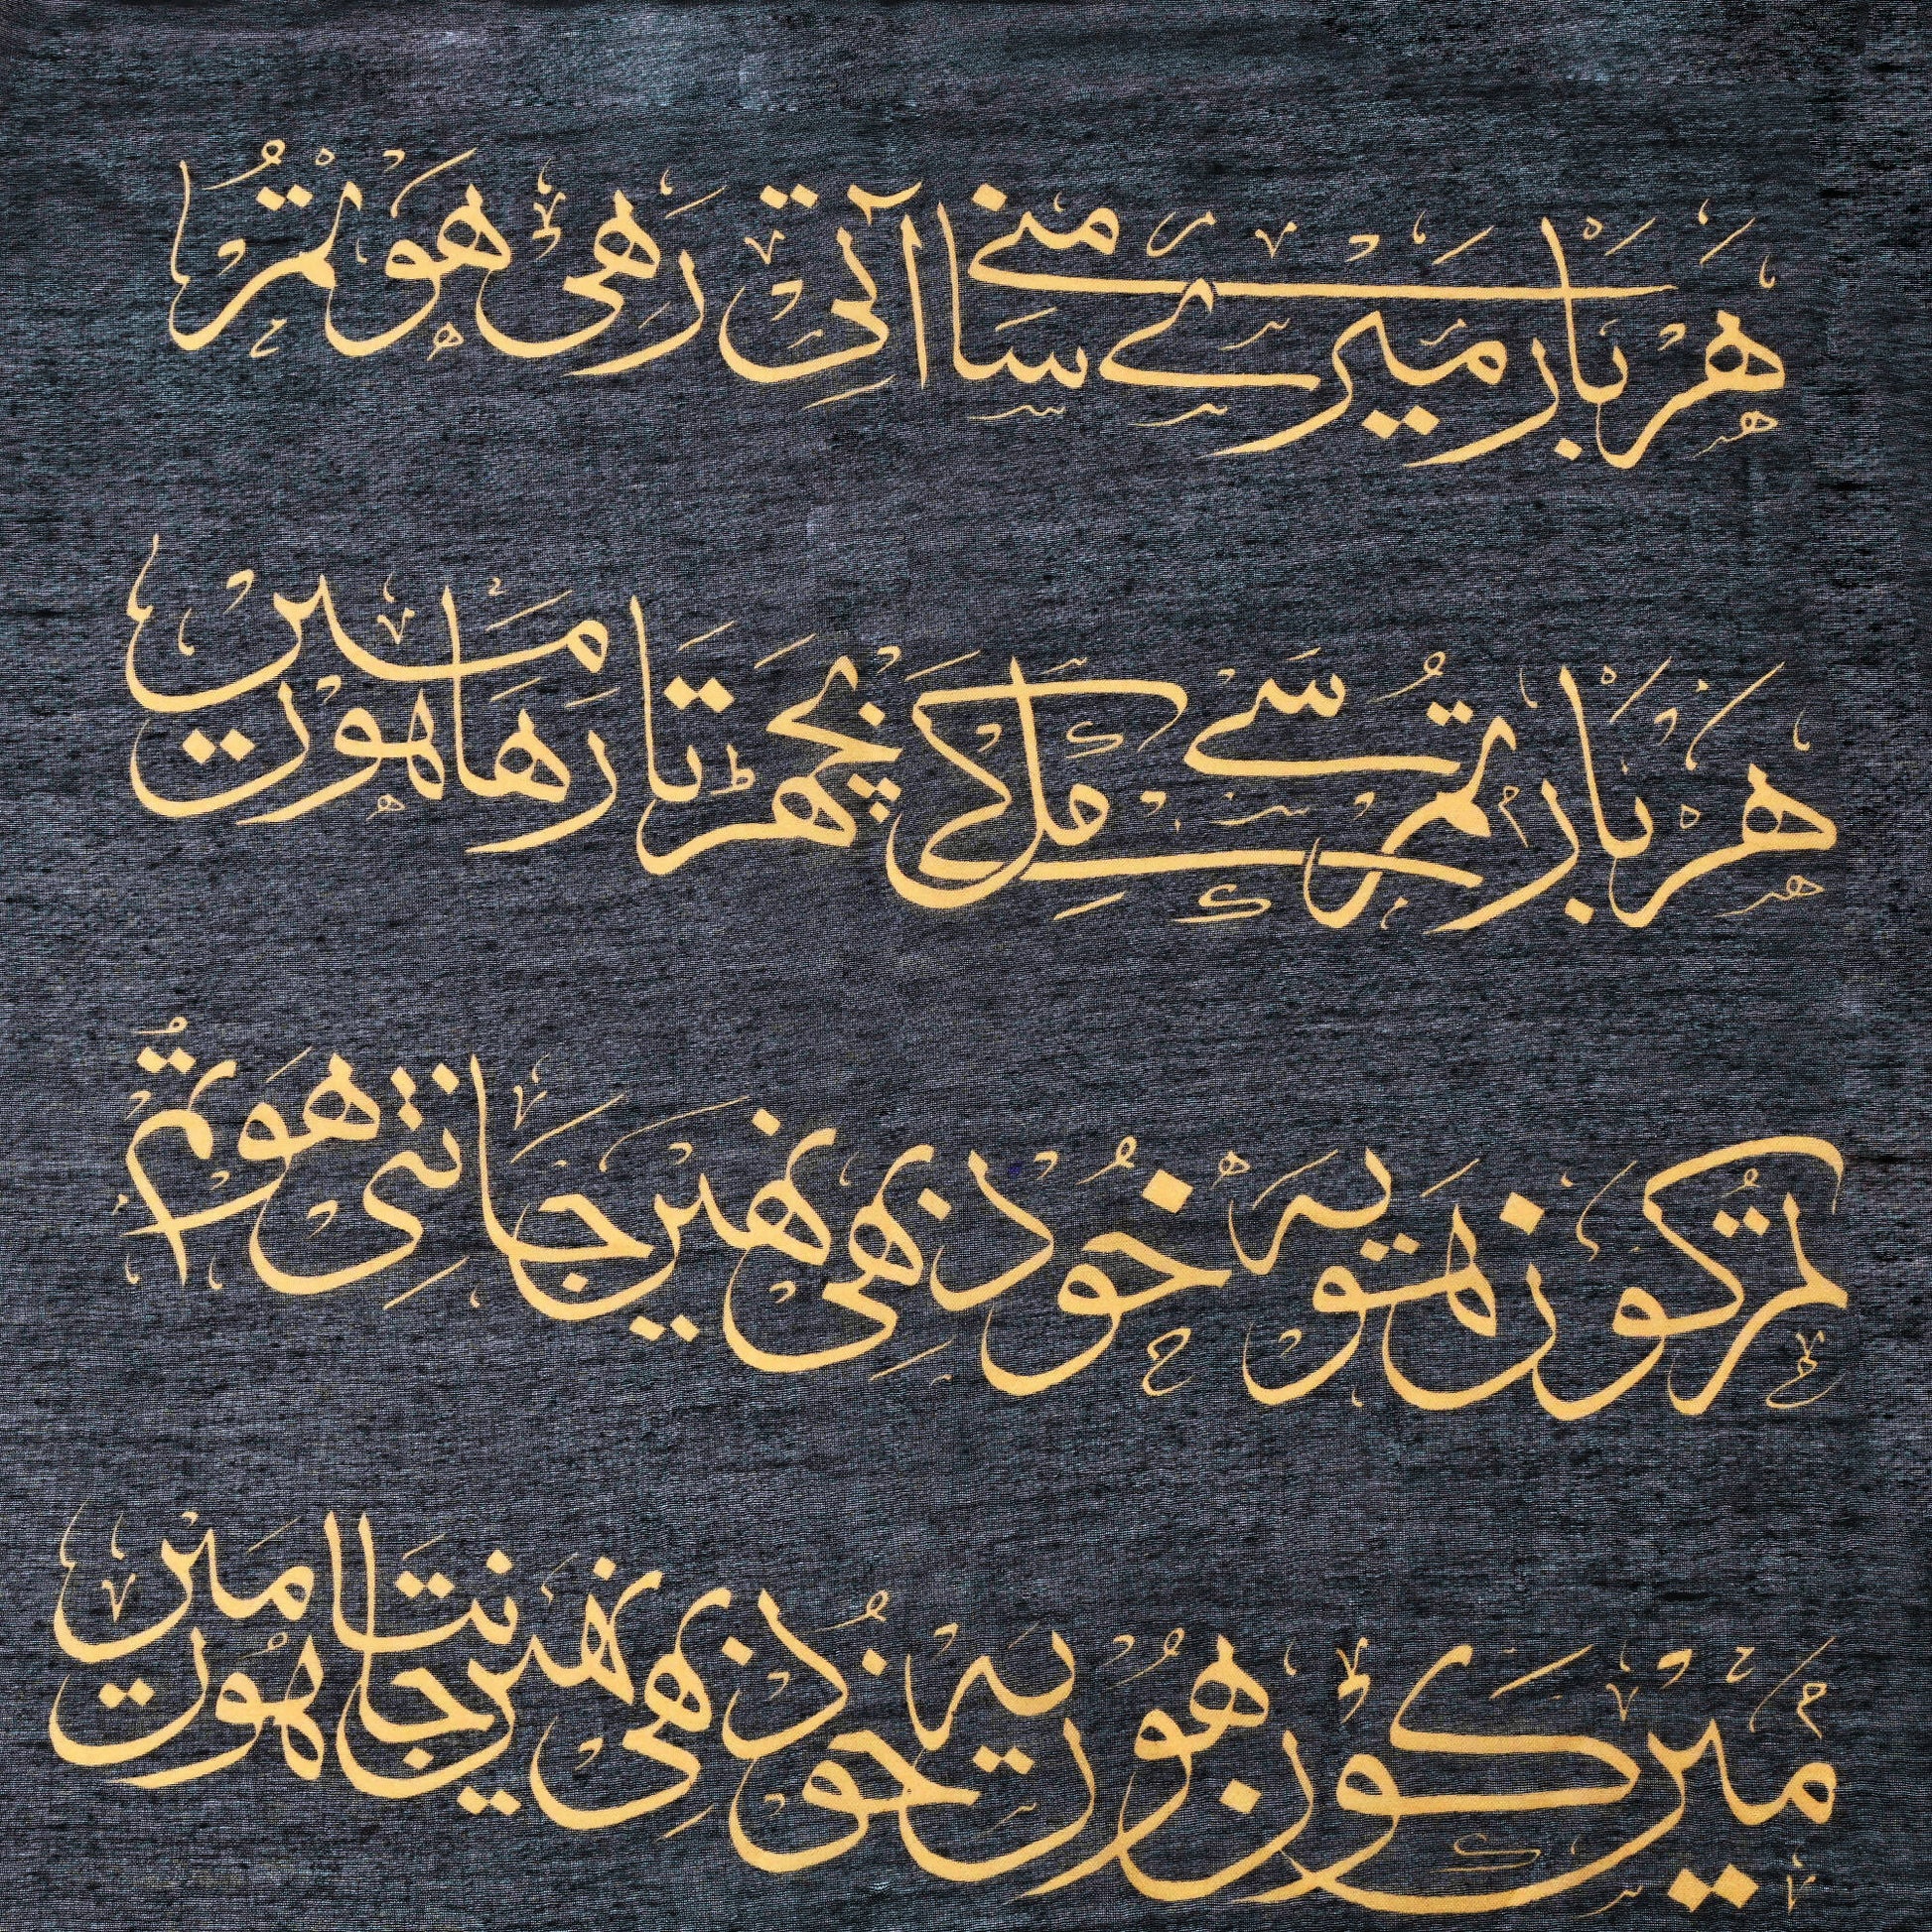 ہر بار میرے سامنے آتی رہی ہو تم
ہر بار تم سے مل کے بچھڑتا رہا ہوں میں
تم کون ہو یہ خود بھی نہیں جانتی ہو تم
میں کون ہوں یہ خود بھی نہیں جانتا ہوں میں